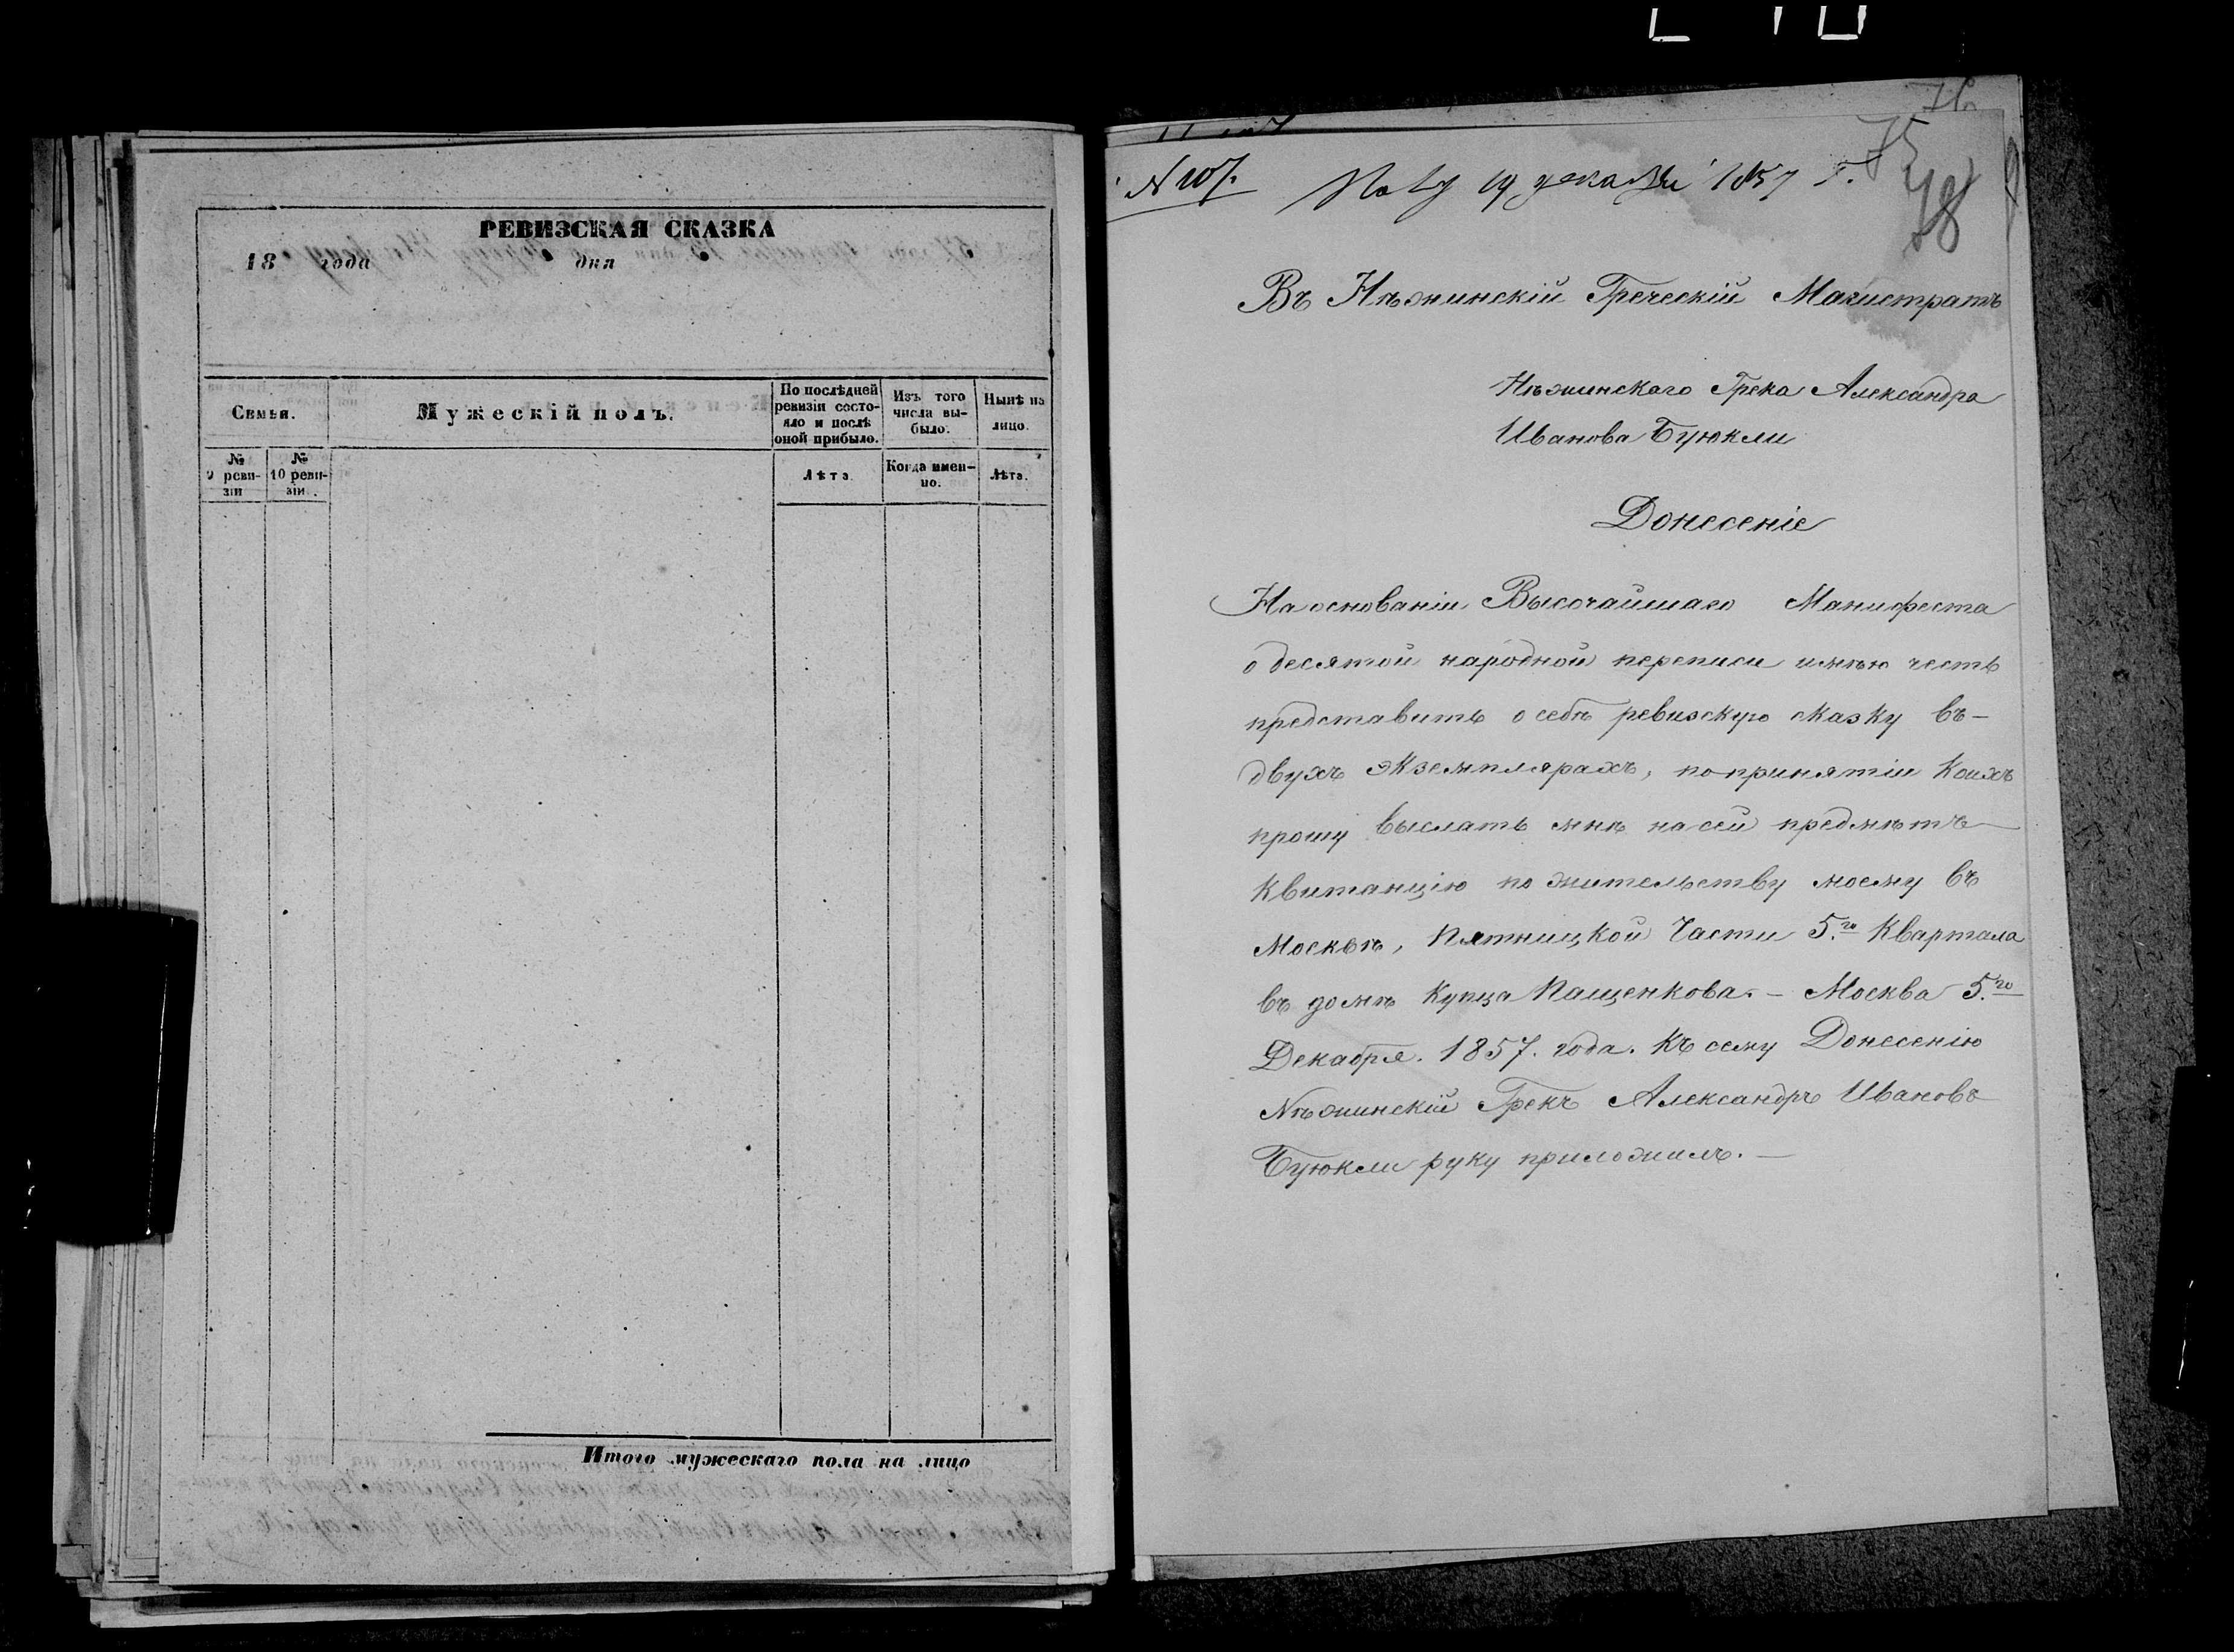 РЕВИЗСКАЯ СКАЗКА
18 года дня
Семья.
Мужескій полъ.
По послѣдней ревизіи состо-
яло и послѣ оной прибыло.
Изъ того числа вы-
было.
Нынѣ на лицо.
№ 9 реви-
зіи
№ 10 реви-
зіи.
Лѣта.
Когда имен-
но.
Лѣта.
Итого мужескаго пола на лицо
76
75
78
19 декабря 1857 г.
Въ Нѣжинскій Греческій Магистратъ
Нѣжинскаго Грека Александра
Иванова Буюкли
Донесеніе
На основаніи Высочайшаго Манифеста
о десятой народной переписи имѣю честь
представить о себѣ ревизскую сказку въ-
двухъ экземплярахъ, по принятіи коихъ
прошу выслать мнѣ на сей предмѣтъ
квитанцію по жительству моему въ
Москвѣ, Пятницкой Части 5.го Квартала
въ домѣ Купца Пащенкова. - Москва 5.го
Декабря. 1857. года. Къ сему Донесенію
Нѣжинскій Грекъ Александръ Ивановъ
Буюкли руку приложилъ. -